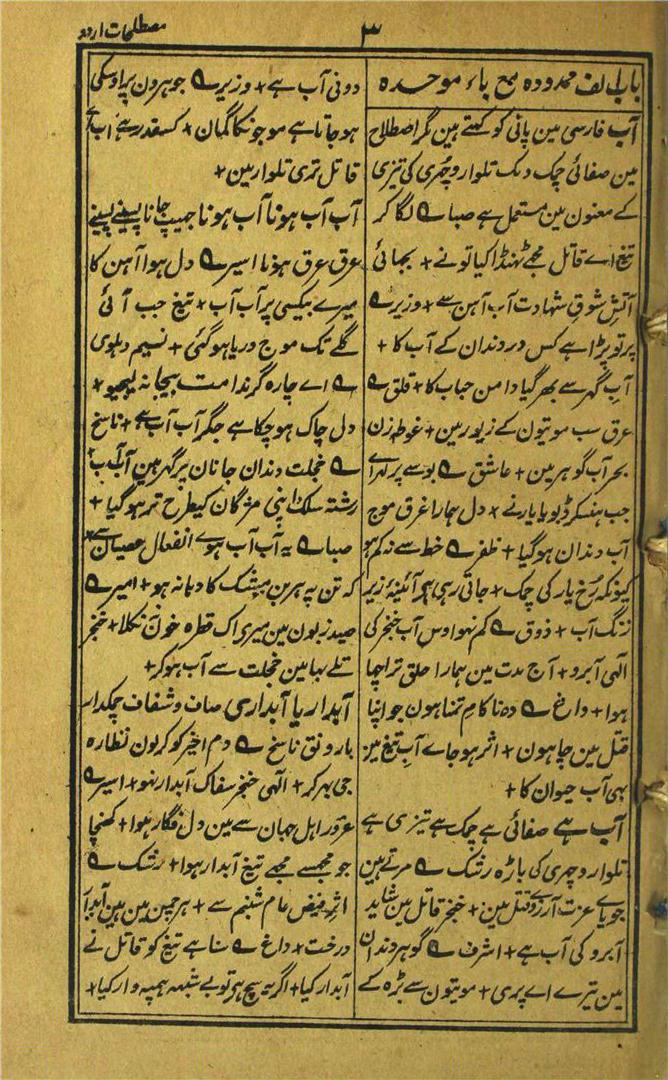 مصطلحات اردو
۳
باب الف ممدودہ مع باء موحدہ
آب فارسی مین پانی کو کہتے ہین مگر اصطلاح
مین صفائی چمک دمک تلوار و چھری کی تیزی
کے معنون مین مستعمل ہے صبا ؎ لگا کر
تیغ اے قاتل مجھے ٹھنڈا کیا تونے + بجھائی
آتش شوقِ شہادت آب آہن سے + وزیر ؎
پرتو پڑا ہے کس در دندان کے آب کا +
آب گہر سے بھر گیا دامن حباب کا + قلق ؎
عرق سب موتیون کے زیور مین + غوطہ زن
بحر آب گوہر مین + عاشق ؎ بوسے پر
جب ہنسکر ڈبویا یار نے × دل ہمارا غرق موج
آب دندان ہوگیا + ظفر ؎ خط سے نہ کم ہو
کیونکہ رخ یار کی چمک + جاتی رہی ہے آئینہ زیر
زنگ آب + ذوق ؎ کم نہو اوس آب خنجر کی
الٰہی آبرو + آج مدت مین ہمارا حلق تر اچھا
ہوا + داغ ؎ وہ ناکام تمنا ہون جو اپنا
قتل مین چاہون + اثر ہو جاے آبِ تیغ مین
بھی آب حیوان کا +
آب ہے صفائی ہے چمک ہے تیزی ہے
تلوار و چھری کی باڑہ رشک ؎ مرتے ہین
جو یاے عزت آرزوے قتل مین + خنجر قاتل مین شاید
آبرو کی آب ہے + اشرف ؎ گوہر دندان
مین تیرے اے پری + موتیون سے بڑہ کے
دونی آب ہے + وزیر ؎ جوہرون پر اوسکی
ہوجاتا ہے موجونکا گمان × کسقدر ہے آب اے
قاتل تری تلوار مین +
آب آب ہونا آب ہونا جھیپ جانا پسینے پسینے
عرق عرق ہونا اسیر ؎ دل ہوا آہن کا
میرے بیکسی پر آب آب × تیغ جب آئی
گلے تک موج دریا ہوگئی + نسیم دہلوی
؎ اے چارہ گر ندامت بیجا نہ لیجیو ×
دل چاک ہوچکا ہے جگر آب آب ہے + ناسخ
؎ خجلت دندان جانان پر گہر ہین آب آب
رشتہ سلک اپنی مژگان کیطرح تر ہو گیا +
صبا ؎ یہ آب آب ہوے انفعال عصیان سے
کہ تن پہ پیرہن مشک کا دہانہ ہو + امیر ؎
صید زبون مین میری اک قطرہ خون نہ نکلا + خنجر
تلے بہا مین خجلت سے آب ہوکر +
آبدار یا آبداری صاف و شفاف چمکدار
بارونق ناسخ ؎ دم اخیر کو کر لون نظارہ
جی بہر کر + الٰہی خنجر سفاک آبدار نہو + اسیر ؎
غرور اہل جہان سے مین دل فگار ہوا + کھنچا
جو مجھسے مجھے تیغ آبدار ہوا + رشک ؎
اثر فیض عام شبنم سے + ہر چمن مین ہین آبدار
درخت × داغ ؎ سنا ہے تیغ کو قاتل نے
آبدار کیا + اگر یہ سچ ہے تو بے شبہہ ہمپہ وار کیا +